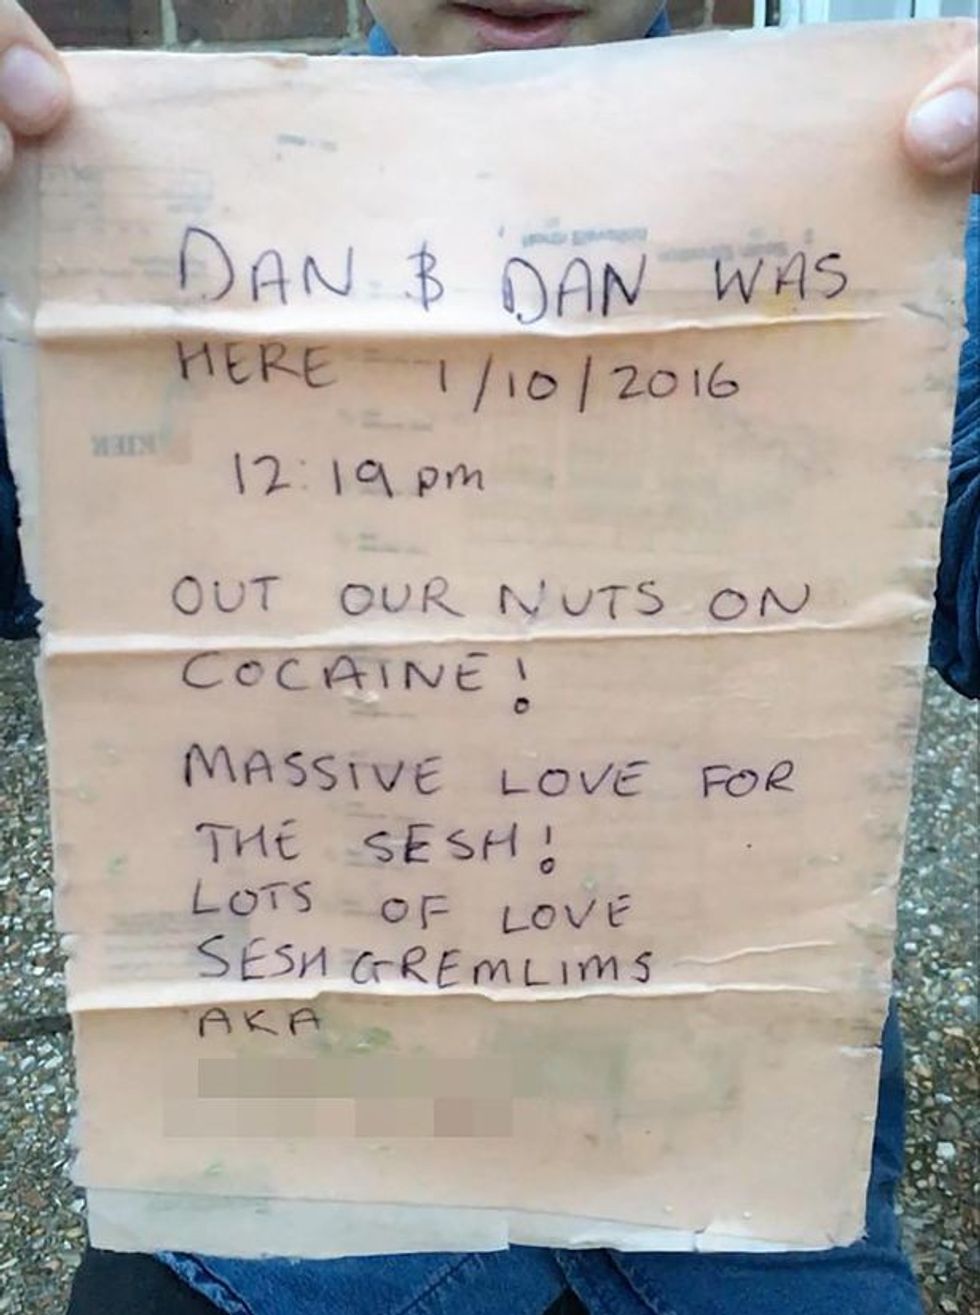 DAN & DAN WAS
HERE 1/10/2016
12:19 pm
OUT OUR NUTS ON
COCAINE!
MASSIVE LOVE FOR
THE SESH!
LOTS OF LOVE
SESH GREMLIMS
AKA
KIER